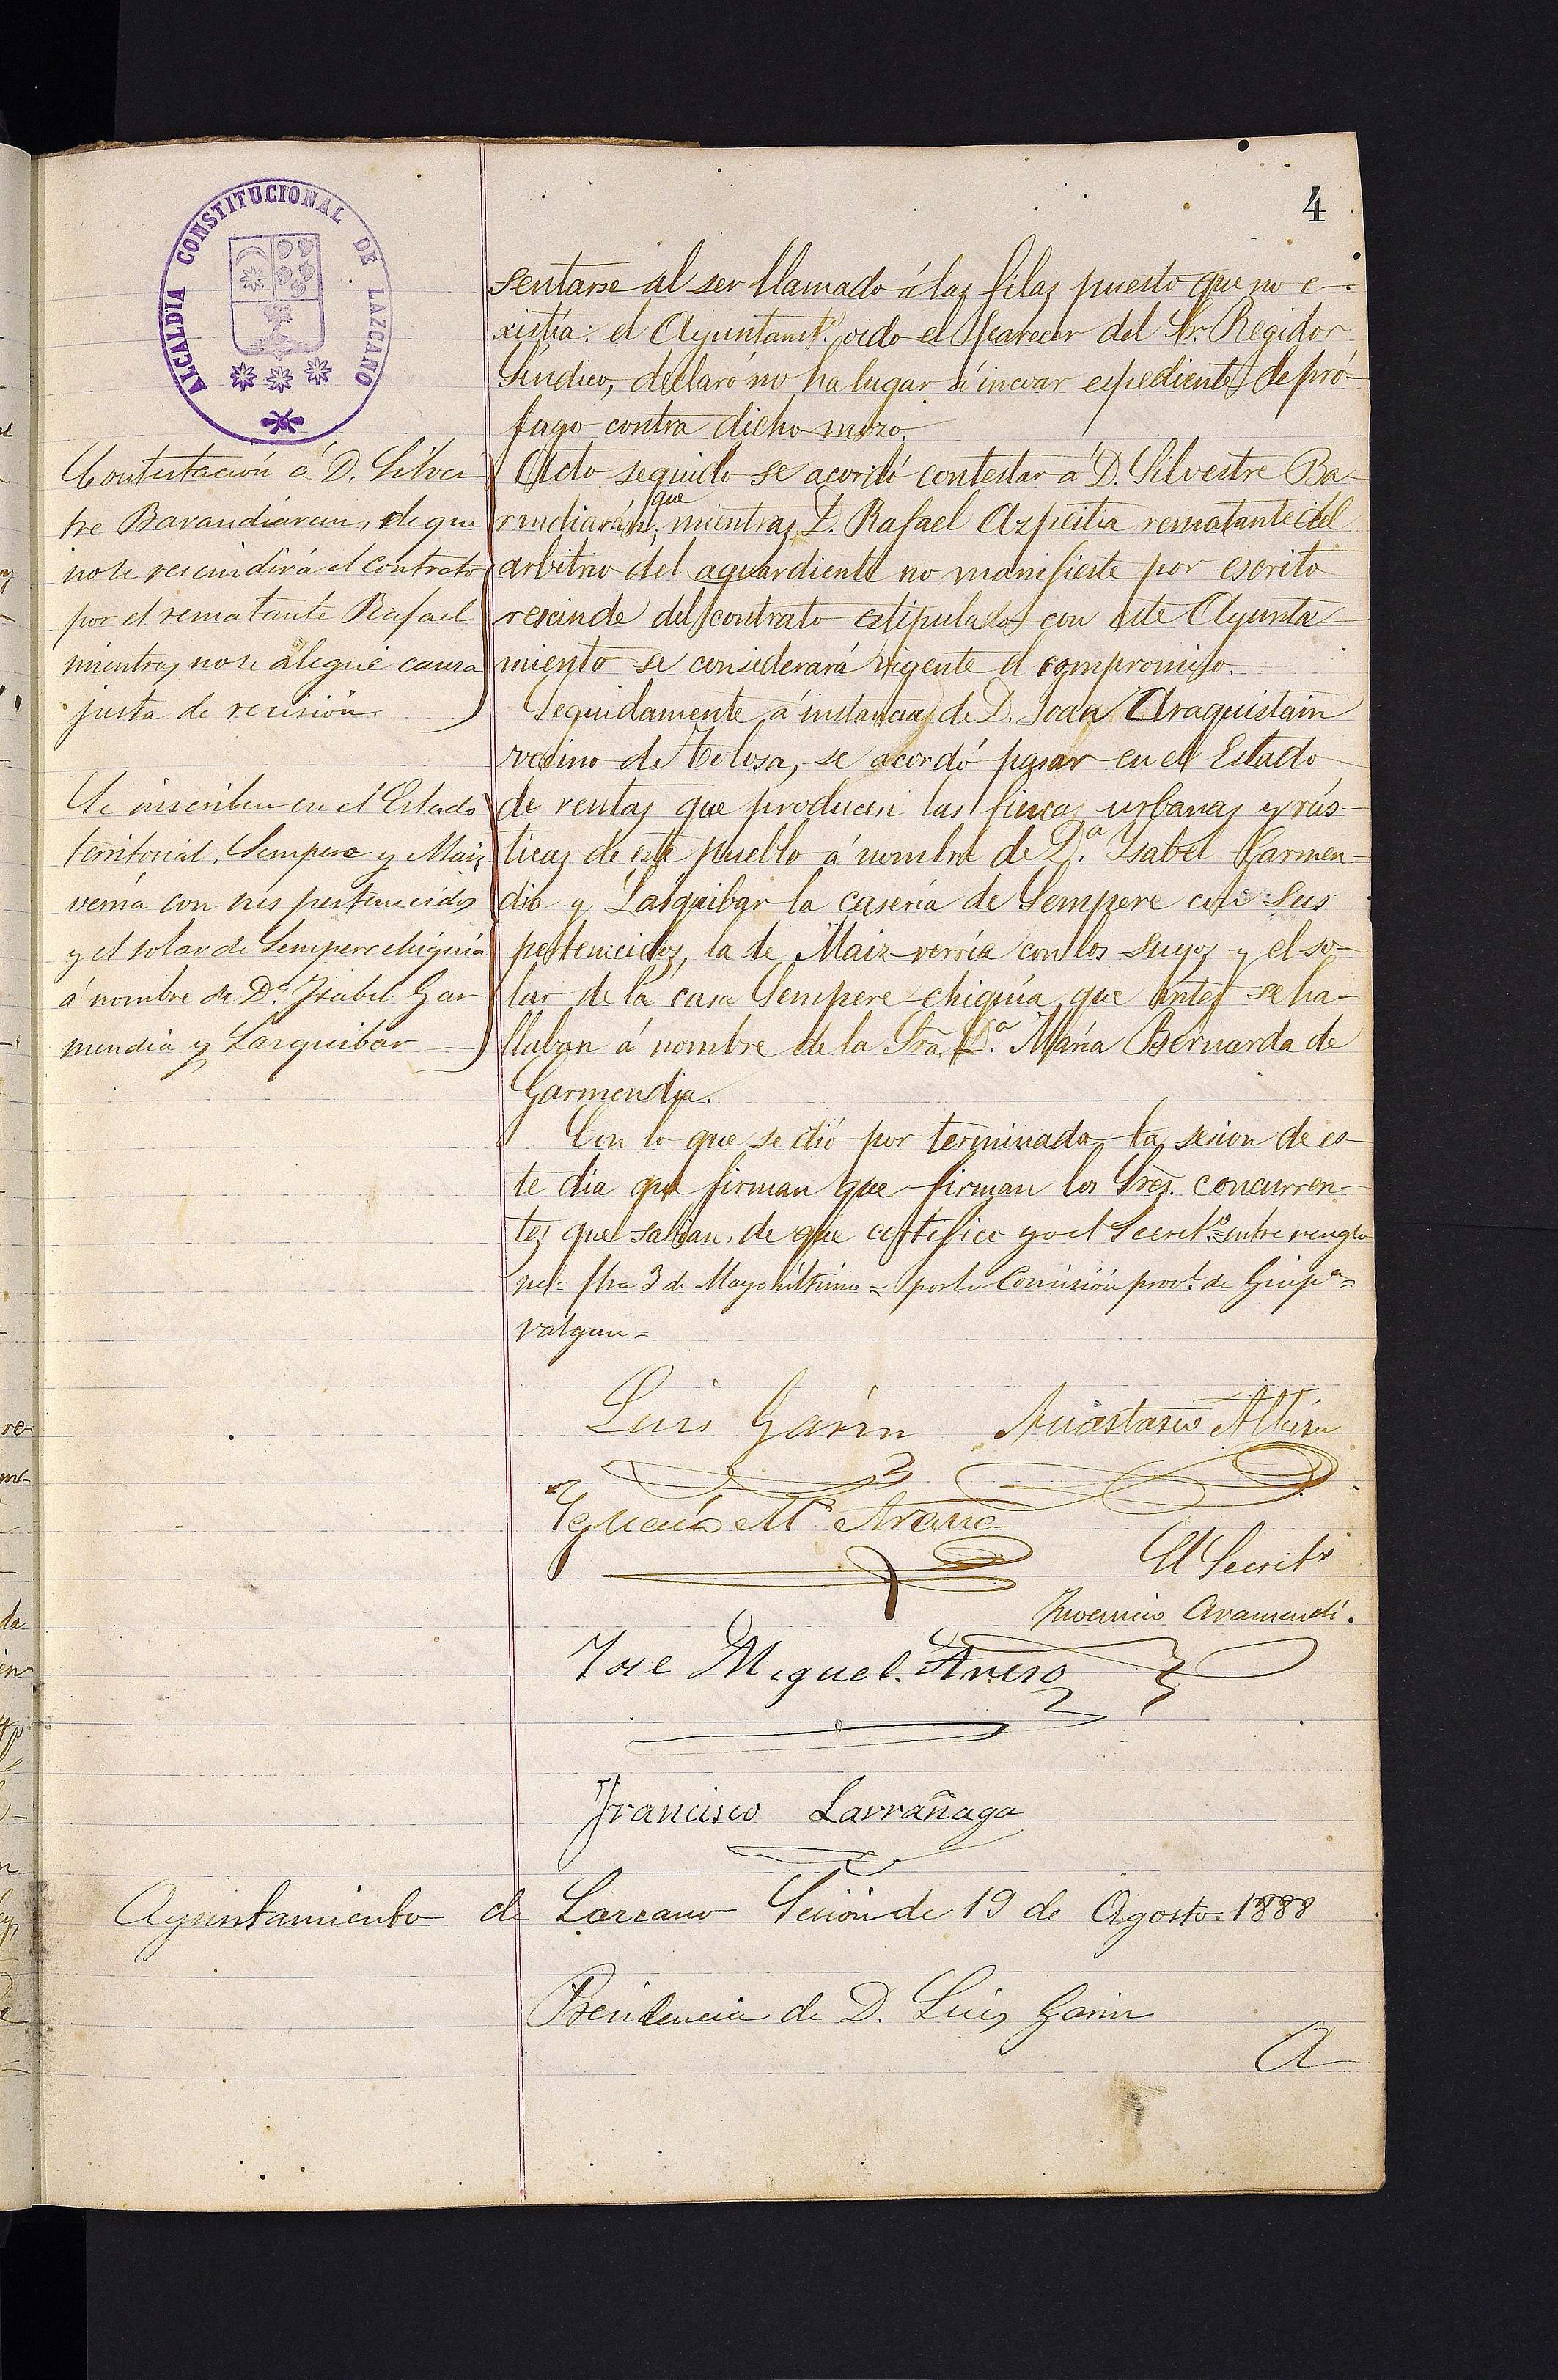 4
ALCALDÍA CONSTITUCIONAL DE LAZCANO
sentarse al ser llamado á las filas puesto que no e-
xistía: el Ayuntamto. oido el parecer del Sr. Regidor
Síndico, declaró no ha lugar á incoar espediente de pró-
fugo contra dicho mozo.
Contestación á D. Silves
tre Barandiaran, de que
no se rescindirá el contrato
por el rematante Rafael
mientras no se alegue causa
justa de recisión.
Acto seguido se acordó contestar á D. Silvestre Ba-
que
rndiarán, mientras D. Rafael Azpeitia rematante del
arbitrio del aguardiente no manifieste por escrito
rescinde del contrato estipulado con este Ayunta
miento se considerará vigente el compromiso.
Seguidamente á instancia de D. Juan Araquistain
vecino de Tolosa, se acordó pasar en el Estado
Se inscriben en el Estado
territorial, Sempere y Maiz
verría con sus pertenecidos
y el solar de Semperechiquia
á nombre de Da. Isabel Gar
mendia y Larquibar
de rentas que producen las fincas urbanas y rús-
ticas de este pueblo á nombre de D.a Isabel Garmen-
dia y Larquibar la casería de Sempere con sus
pertenecidos, la de Maiz-verría con los suyos y el so-
lar de la casa Sempere-chiquía que antes se ha-
llaban á nombre de la Sra. D.a María Bernarda de
Garmendia.
Con lo que se dió por terminada la sesion de es-
te dia que firman que firman los Sres. concurren-
tes que saben, de que certifico yo el Secreto.=entre renglo
nes= fha 3 de Mayo último = por la Comisión provl. de Guipa=
valgan=
Luis Garin Anastasio Altuna
Ygnacio Ma Arana
El Secreto
Juvencio Aramendi.
Jose Miguel
Francisco Larrañaga
Ayuntamiento de Lazcano Sesión de 19 de Agosto. 1888
Presidencia de D. Luis Garin
A